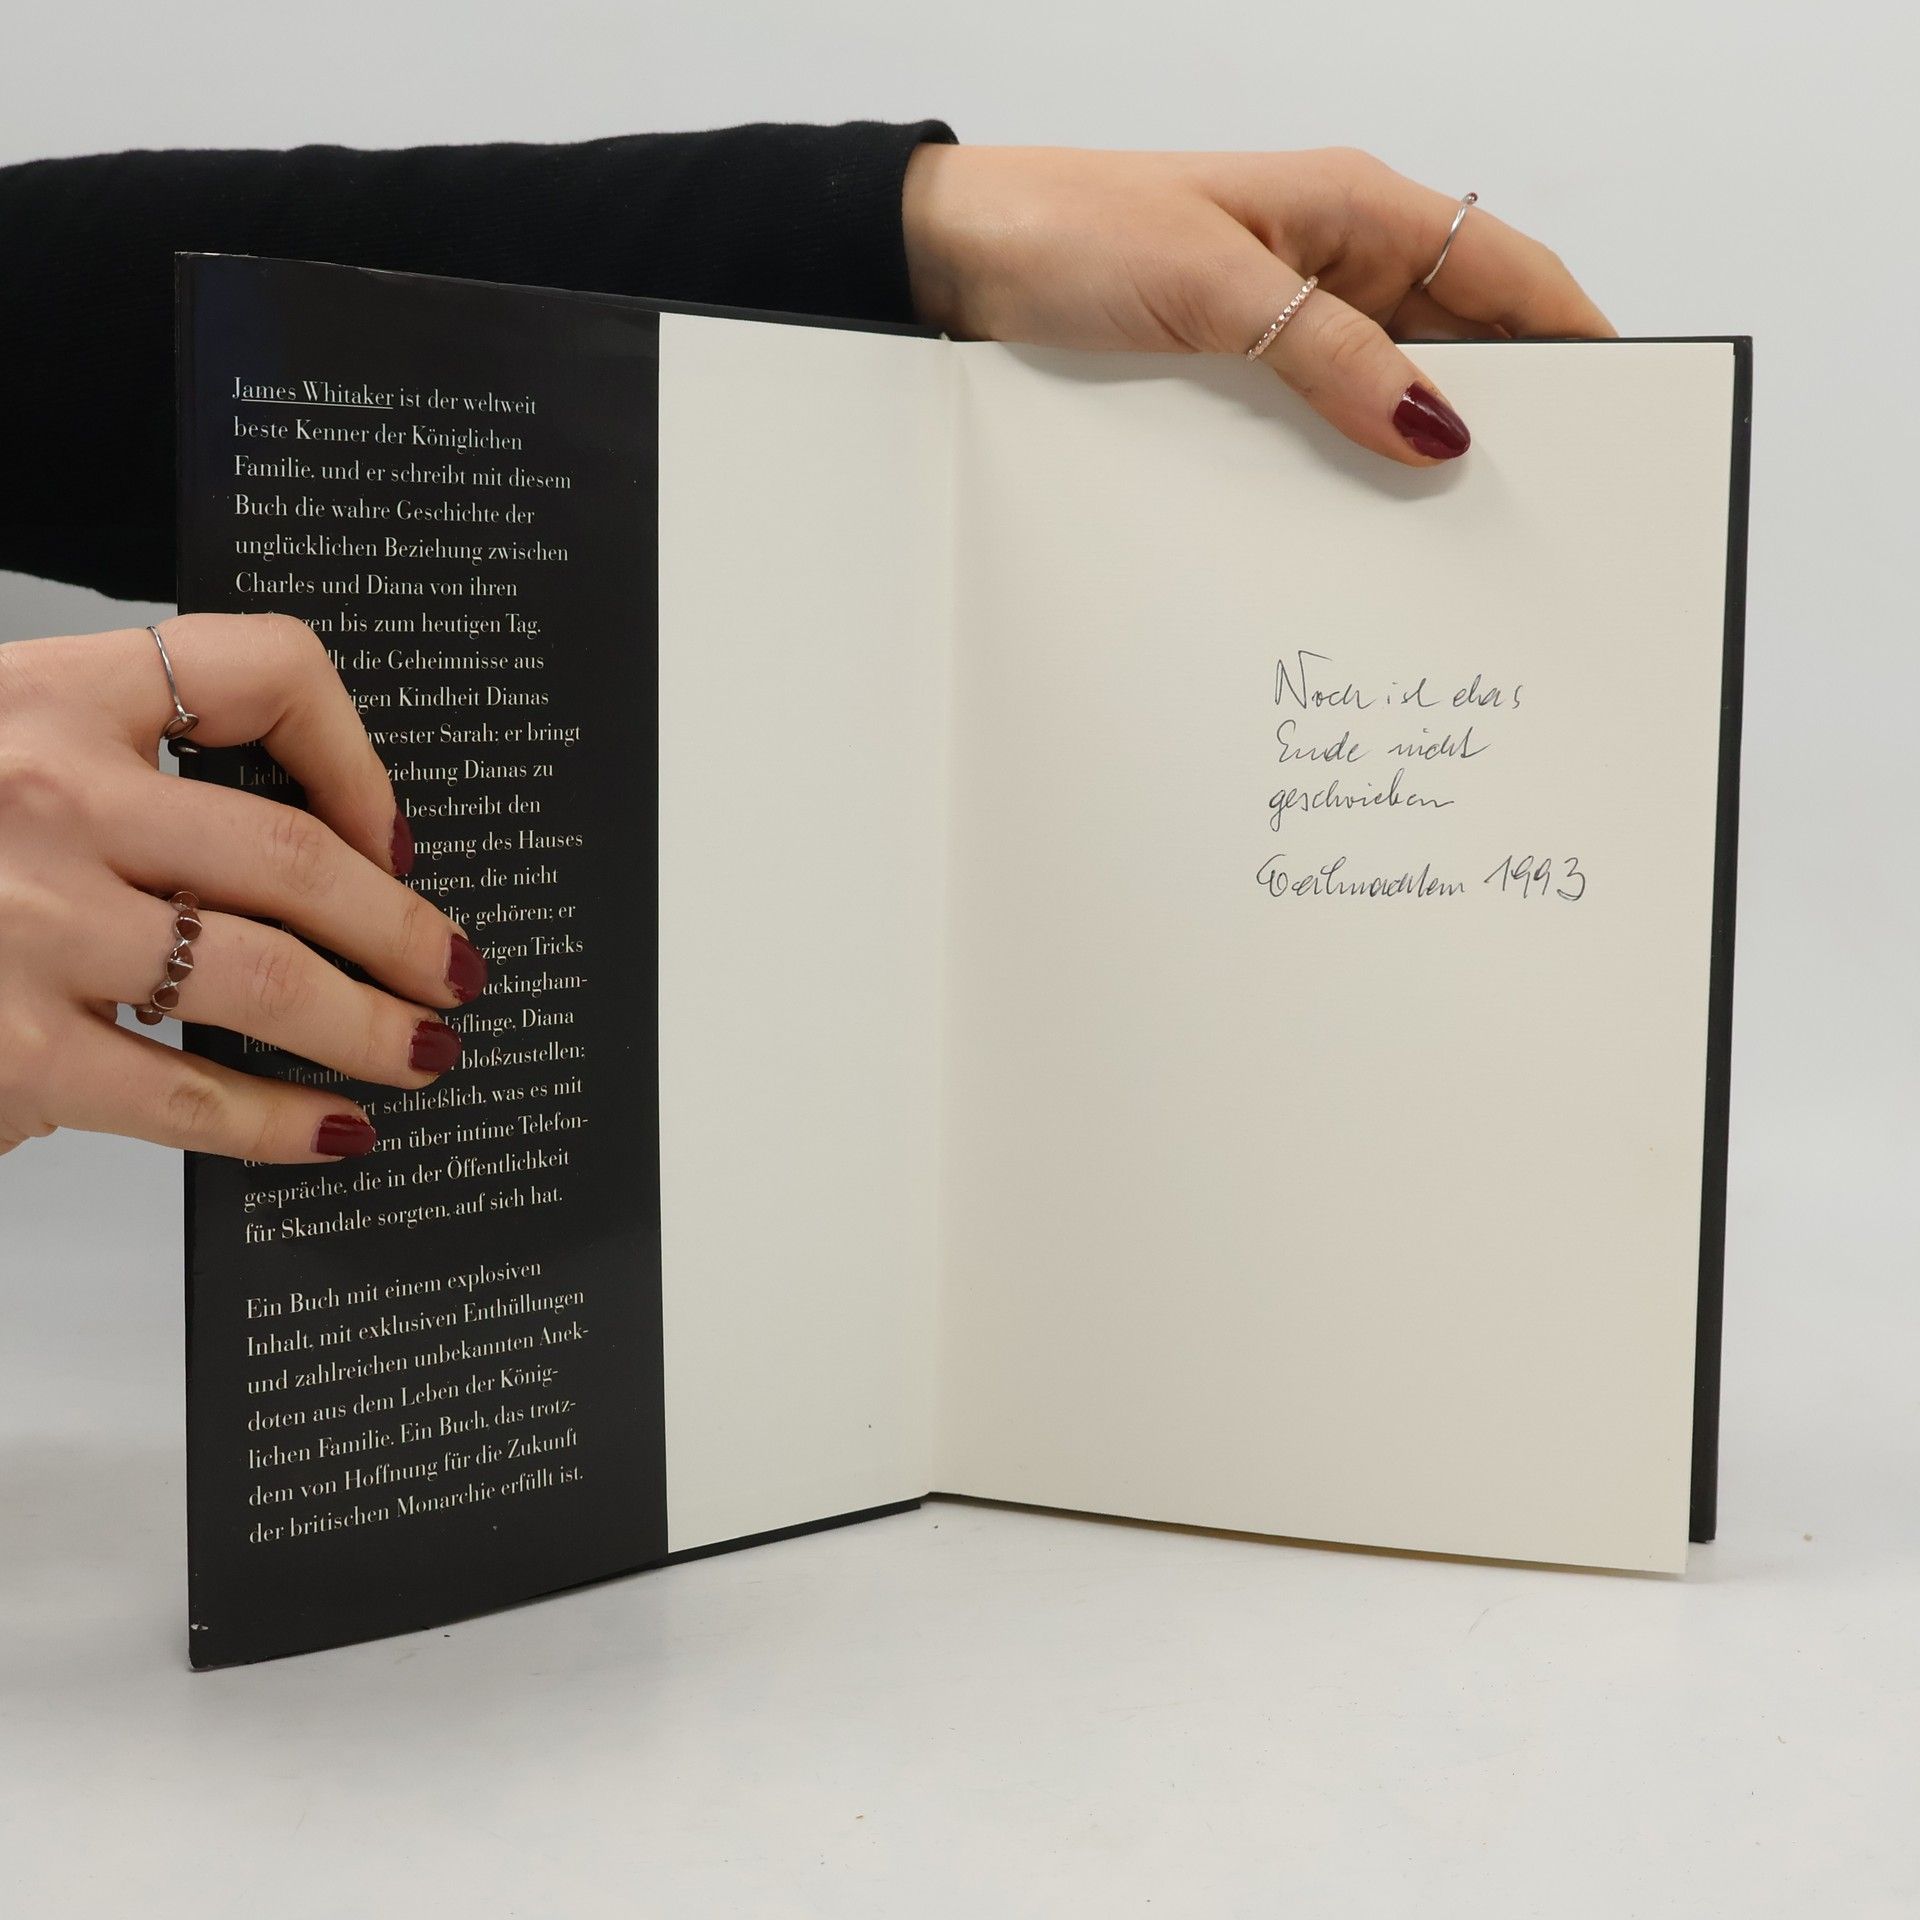 James Whitaker ist der weltweit
beste Kenner der Königlichen
Familie, und er schreibt mit diesem
Buch die wahre Geschichte der
unglücklichen Beziehung zwischen
Charles und Diana von ihren
bis zum heutigen Tag.
die Geheimnisse aus
Kindheit Dianas
Sarah; er bringt
Licht Dianas zu
beschreibt den
des Hauses
die nicht
gehören; er
Tricks
uckingham-
Höflinge, Diana
bloßzustellen;
schließlich, was es mit
über intime Telefon-
gespräche, die in der Öffentlichkeit
für Skandale sorgten, auf sich hat.
Ein Buch mit einem explosiven
Inhalt, mit exklusiven Enthüllungen
und zahlreichen unbekannten Anek-
doten aus dem Leben der König-
lichen Familie. Ein Buch, das trotz-
dem von Hoffnung für die Zukunft
der britischen Monarchie erfüllt ist.
Noch ist das
Ende nicht
geschrieben
Weihnachten 1993